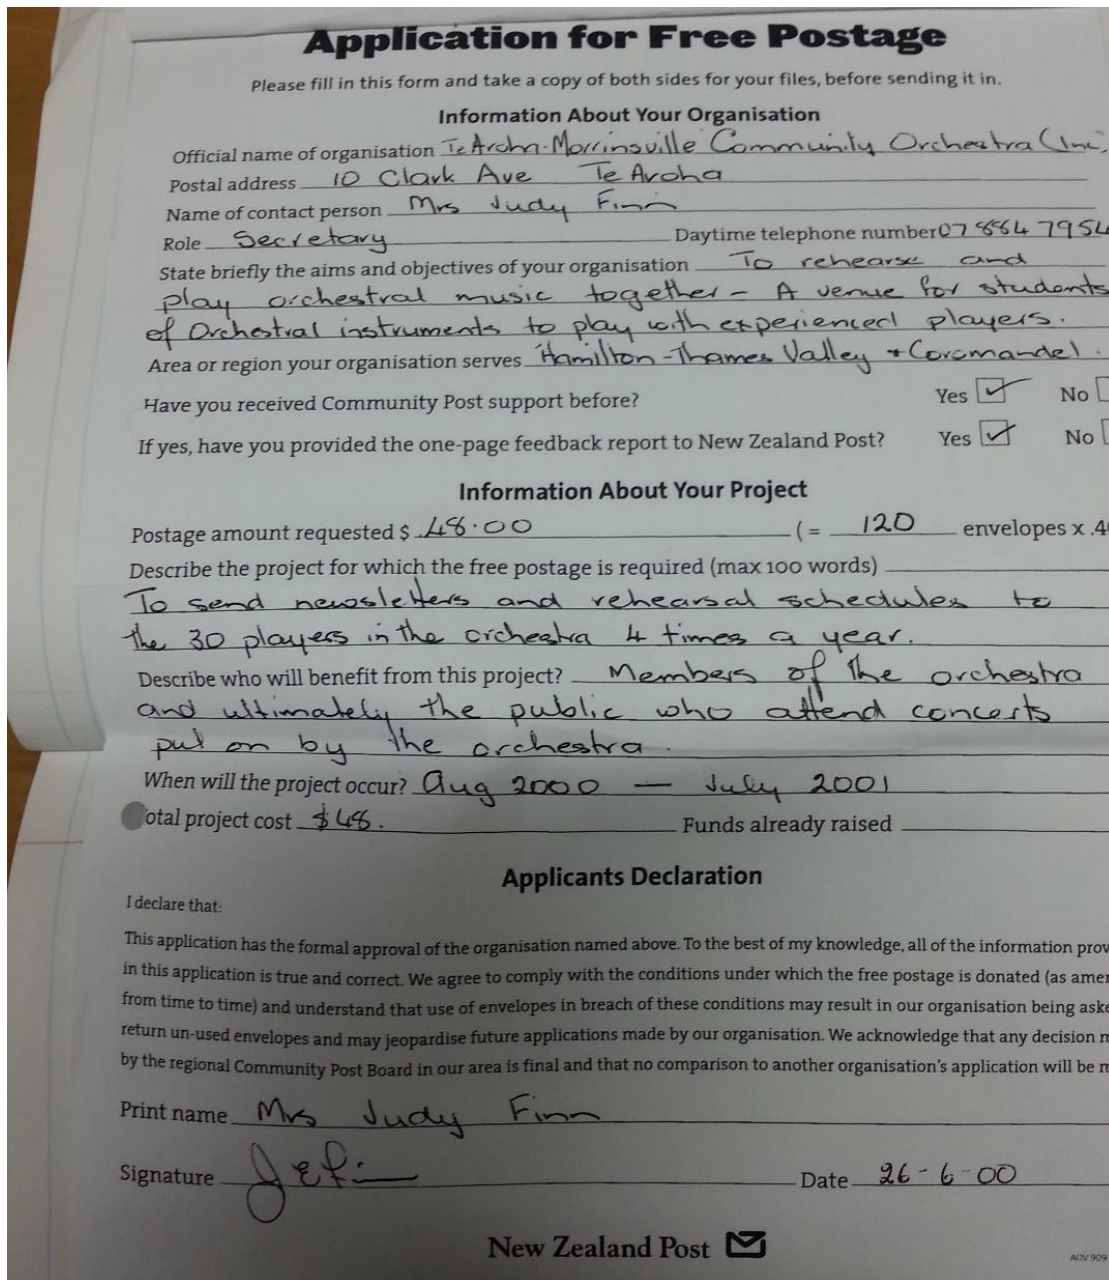 Application for Free Postage
Please fill in this form and take a copy of both sides for your files, before sending it in.
Information About Your Organisation
Official name of organisation Te Aroha-Morrinsville Community Orchestra (Inc)
Postal address 10 Clark Ave Te Aroha
Name of contact person Mrs Judy Finn
Role Secretary Daytime telephone number 07 884 7954
State briefly the aims and objectives of your organisation To rehearse and
play orchestral music together - A venue for students
of Orchestral instruments to play with experienced players.
Area or region your organisation serves Hamilton-Thames Valley + Coromandel.
Have you received Community Post support before? Yes No
If yes, have you provided the one-page feedback report to New Zealand Post? Yes No
Information About Your Project
Postage amount requested $ 48.00 (= 120 envelopes x .4
Describe the project for which the free postage is required (max 100 words)
To send newsletters and rehearsal schedules to
the 30 players in the orchestra 4 times a year.
Describe who will benefit from this project? Members of the orchestra
and ultimately the public who attend concerts
put on by the orchestra.
When will the project occur? Aug 2000 — July 2001
otal project cost $48. Funds already raised
Applicants Declaration
I declare that:
This application has the formal approval of the organisation named above. To the best of my knowledge, all of the information prov
in this application is true and correct. We agree to comply with the conditions under which the free postage is donated (as amen
from time to time) and understand that use of envelopes in breach of these conditions may result in our organisation being aske
return un-used envelopes and may jeopardise future applications made by our organisation. We acknowledge that any decision m
by the regional Community Post Board in our area is final and that no comparison to another organisation's application will be m
Print name Mrs Judy Finn
Signature Date 26-6-00
New Zealand Post
ADV 909